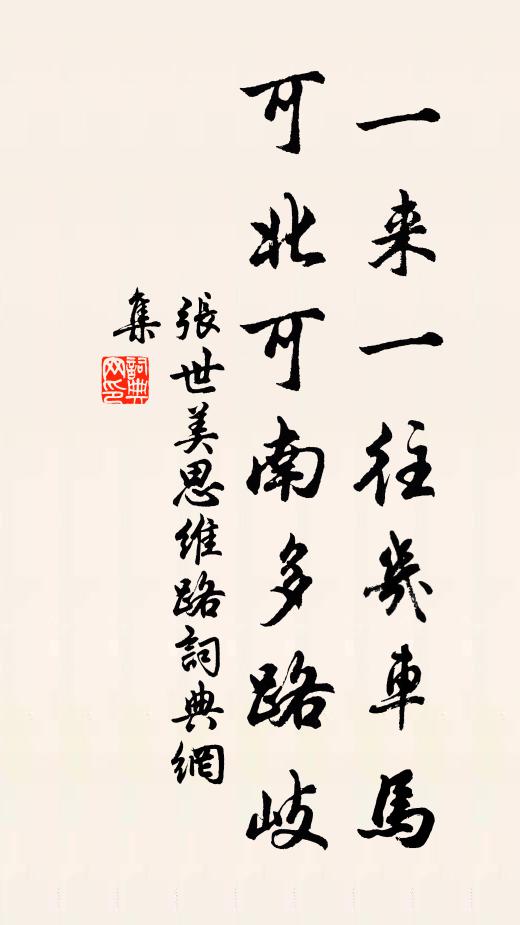 一来一往幾車馬
可北可南多路岐
張世美思維路詞典網
集
詞典
网印